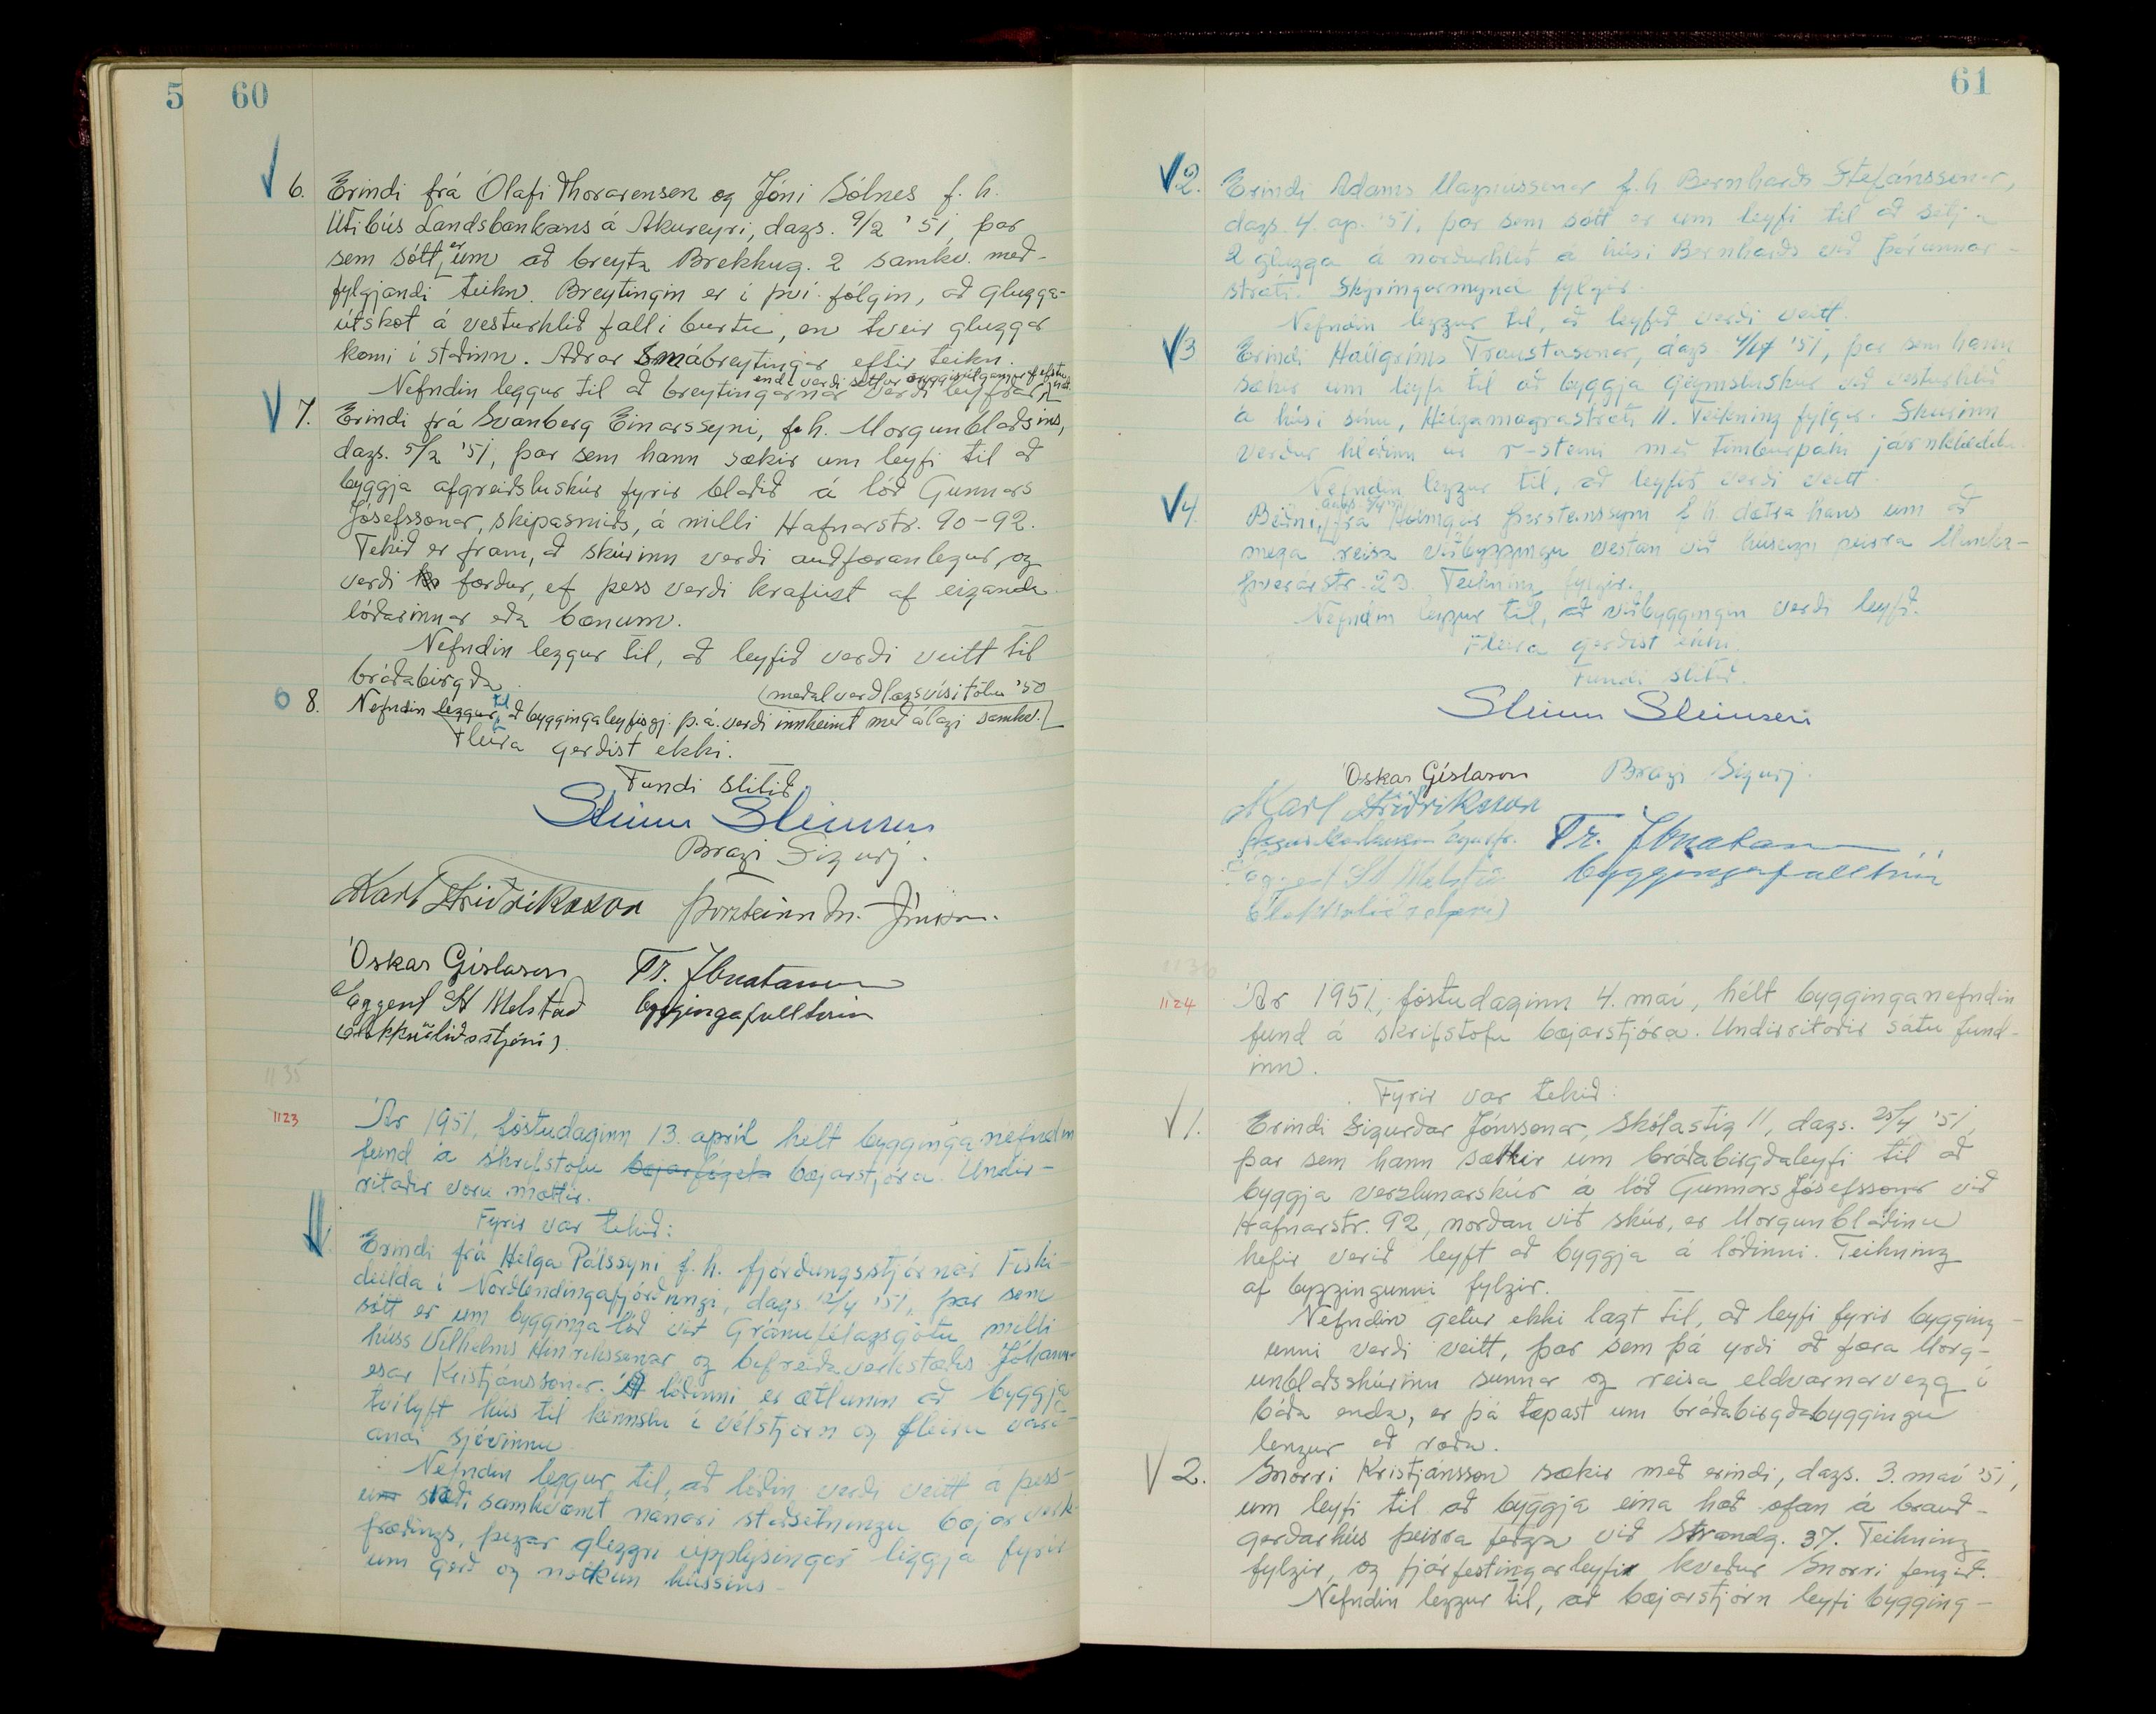 5 60
6. Erindi frá Ólafi Thorarensen og Jóni Sólnes f. h.
Útibús Landsbankans á Akureyri, dags. 9/2 '51, þar
sem sótt er um að breyta Brekkug. 2 samkv. með-
fylgjandi teikn. Breytingin er í því fólgin, að glugga-
útskot á vesturhlið falli burtu, en tveir gluggar
komi í staðinn. Aðrar smábreytingar eftir teikn.
Nefndin leggur til að breytingarnar verði leyfðar
enda verði settur öryggisútgangur af efstu
7. Erindi frá Svanberg Einarssyni, f.h. Morgunblaðsins,
dags. 5/2 '51, þar sem hann sækir um leyfi til að
byggja afgreiðsluskúr fyrir blaðið á lóð Gunnars
Jósefssonar, skipasmiðs, á milli Hafnarstr. 90-92.
Tekið er fram, að skúrinn verði auðfæranlegur, og
verði færður, ef þess verði krafist af eiganda
lóðarinnar eða bænum.
Nefndin leggur til, að leyfið verði veitt til
bráðabirgða.
(meðalverðlagsvísitölu '50
8. Nefndin leggur til, að byggingaleyfisgj. þ.á. verði innheimt með álagi samkv.
Fleira gerðist ekki.
Fundi slitið
Steinn Steinsen
Bragi Sigurj.
Karl Friðriksson Þorsteinn M. Jónsson.
Óskar Gíslason Tr. Jónatansson
Eggert St Melstað byggingafulltrúi
(slökkviliðsstjóri)
1135
1123
Ár 1951, föstudaginn 13. apríl hélt bygginganefndin
fund á skrifstofu bæjarfógeta bæjarstjóra. Undir-
ritaðir voru mættir.
Fyrir var tekið:
1. Erindi frá Helga Pálssyni f. h. fjórðungsstjórnar Fiski-
deilda í Norðlendingafjórðungi, dags. 12/4 '51, þar sem
sótt er um byggingalóð við Gránufélagsgötu milli
húss Vilhelms Hinrikssonar og bifreiðaverkstæðis Jóhann-
esar Kristjánssonar. Á lóðinni er ætlunin að byggja
tvílyft hús til kennslu í vélstjórn og fleiru varð-
andi sjóvinnu.
Nefndin leggur til, að lóðin verði veitt á þess-
um stað, samkvæmt nánari staðsetningu bæjarverk-
fræðings, þegar gleggri upplýsingar liggja fyrir
um gerð og notkun hússins.
61
2. Erindi Adams Magnússonar f. h. Bernharðs Stefánssonar,
dags. 4. ap. '51, þar sem sótt er um leyfi til að setja
2 glugga á norðurhlið á húsi Bernharðs við Þórunnar-
stræti. Skýringarmynd fylgir.
Nefndin leggur til, að leyfið verði veitt.
3 Erindi Hallgríms Traustasonar, dags. 4/4 '51, þar sem hann
sækir um leyfi til að byggja geymsluskúr við vesturhlið
á húsi sínu, Helgamagrastræti 11. Teikning fylgir. Skúrinn
verður hlaðinn úr r-steini með timburþaki járnklæddu.
Nefndin leggur til, að leyfið verði veitt.
4. Beiðni, frá Hólmgeir Þorsteinssyni f. h. dætra hans um að
mega reisa viðbyggingu vestan við húseign þeirra Munka-
þverárstr. 23. Teikning fylgir.
Nefndin leggur til, að viðbyggingin verði leyfð.
Fleira gerðist ekki.
Fundi slitið.
Steinn Steinsen
Óskar Gíslason Bragi Sigurj.
Karl Friðriksson
Tr. Jónatansson
Eggert St Melstað byggingafulltrúi
(slökkviliðsstjóri)
1136
1124
Ár 1951, föstudaginn 4. maí, hélt bygginganefndin
fund á skrifstofu bæjarstjóra. Undirritaðir sátu fund-
inn.
Fyrir var tekið:
1. Erindi Sigurðar Jónssonar, Skólastíg 11, dags. 25/4 '51,
þar sem hann sækir um bráðabirgðaleyfi til að
byggja verzlunarskúr á lóð Gunnars Jósefssonar við
Hafnarstr. 92, norðan við skúr, er Morgunblaðinu
hefir verið leyft að byggja á lóðinni. Teikning
af byggingunni fylgir.
Nefndin getur ekki lagt til, að leyfi fyrir bygging-
unni verði veitt, þar sem þá yrði að færa Morg-
unblaðsskúrinn sunnar og reisa eldvarnarvegg í
báða enda, er þá tæpast um bráðabirgðabyggingu
lengur að ræða.
2. Snorri Kristjánsson sækir með erindi, dags. 3. maí '51,
um leyfi til að byggja eina hæð ofan á brauð-
gerðarhús þeirra feðga við Strandg. 37. Teikning
fylgir, og fjárfestingarleyfi kveður Snorri fengið.
Nefndin leggur til, að bæjarstjórn leyfi bygging-